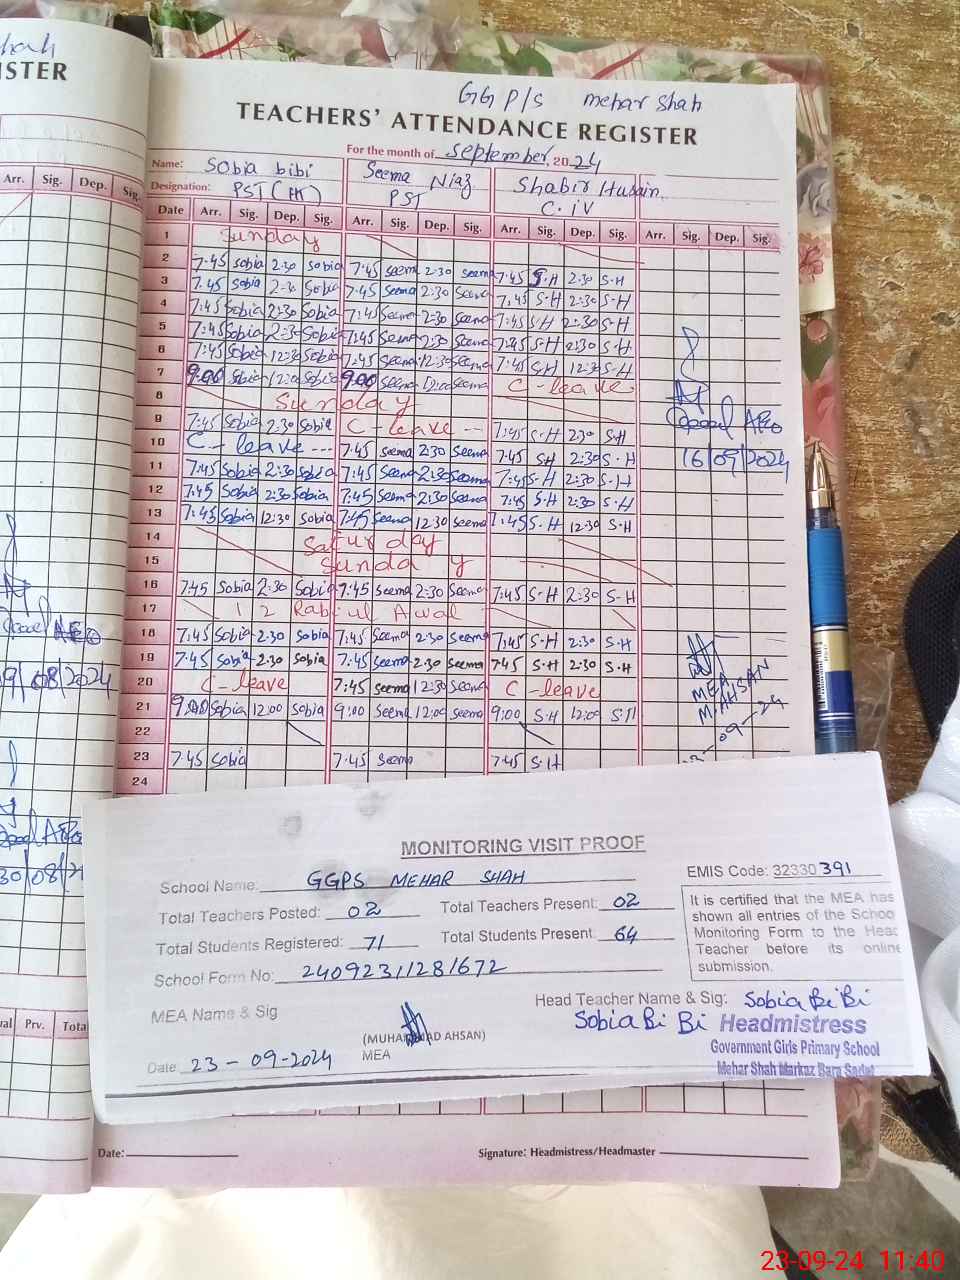 GGP/S mehar shah
TEACHERS' ATTENDANCE REGISTER
For the month of September, 2024
Name: Sobia bibi Seema Niaz Shabir Husain
Designation: PST (H) PST C.iV
Date Arr. Sig. Dep. Sig. Arr. Sig. Dep. Sig. Arr. Sig. Dep. Sig. Arr. Sig. Dep. Sig.
1 Sunday
2 7.45 Sobia 2:30 Sobia 7:45 Seema 2:30 Seema 7.45 S.H 2:30 S-H
3 7.45 Sobia 2:30 Sobia 7:45 Seema 2:30 Seema 7.45 S-H 2:30 S-H
4 7:45 Sobia 2:30 Sobia 7:45 Seema 2:30 Seema 7:45 S-H 2:30 S-H
5 7:45 Sobia 2:30 Sobia 7:45 Seema 2:30 Seema 7:45 S-H 2:30 S-H
6 7:45 Sobia 12:30 Sobia 7:45 Seema 12:30 Seema 7:45 S-H 12:30 S-H
7 9.00 Sobia 12:00 Sobia 9.00 Seema 12:00 Seema C-leave
8 Sunday
9 7:45 Sobia 2:30 Sobia C-leave -- 7:45 S-H 2:30 S-H
10 C-leave --- 7:45 Seema 2:30 Seema 7:45 SH 2:30 S-H
11 7:45 Sobia 2:30 Sobia 7:45 Seema 2:30 Seema 7:45 S-H 2:30 S-H
12 7:45 Sobia 2:30 Sobia 7:45 Seema 2:30 Seema 7:45 S-H 2:30 S-H
13 7:45 Sobia 12:30 Sobia 7:45 Seema 12:30 Seema 7:45 S-H 12:30 S-H
14 Saturday
15 Sunday
16 7:45 Sobia 2:30 Sobia 7:45 Seema 2:30 Seema 7:45 S-H 2:30 S-H
17 12 Rabi ul Awal
18 7:45 Sobia 2:30 Sobia 7:45 Seema 2:30 Seema 7:45 S-H 2:30 S-H
19 7:45 Sobia 2:30 Sobia 7:45 Seema 2:30 Seema 7:45 S.H 2:30 S.H
20 C-leave 7:45 Seema 12:30 Seema C-leave
21 9.00 Sobia 12:00 Sobia 9:00 Seema 12:00 Seema 9:00 S.H 12:00 S.H
22
23 7:45 Sobia 7:45 Seema 7:45 S.H
24
AEO
16/09/2024
MEA
M. AHSAN
MONITORING VISIT PROOF
School Name: GGPS MEHAR SHAH
EMIS Code: 32330391
Total Teachers Posted: 02 Total Teachers Present: 02
Total Students Registered: 71 Total Students Present: 64
School Form No: 24092311281672
It is certified that the MEA has
shown all entries of the School
Monitoring Form to the Head
Teacher before its online
submission.
MEA Name & Sig
(MUHAMMAD AHSAN)
MEA
Head Teacher Name & Sig: Sobia BiBi
Sobia Bi Bi
Headmistress
Government Girls Primary School
Mehar Shah Markaz Bara Sadat
Date 23-09-2024
Date: Signature: Headmistress/Headmaster
23-09-24 11:40